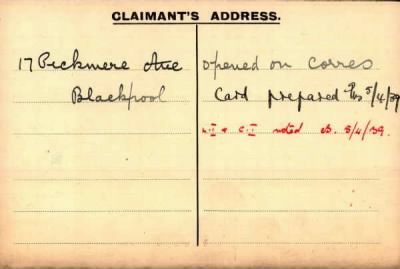 CLAIMANT'S ADDRESS.
17 Pickmere Ave
Blackpool
opened on corres
Card prepared 5/4/39
noted 5/4/39.